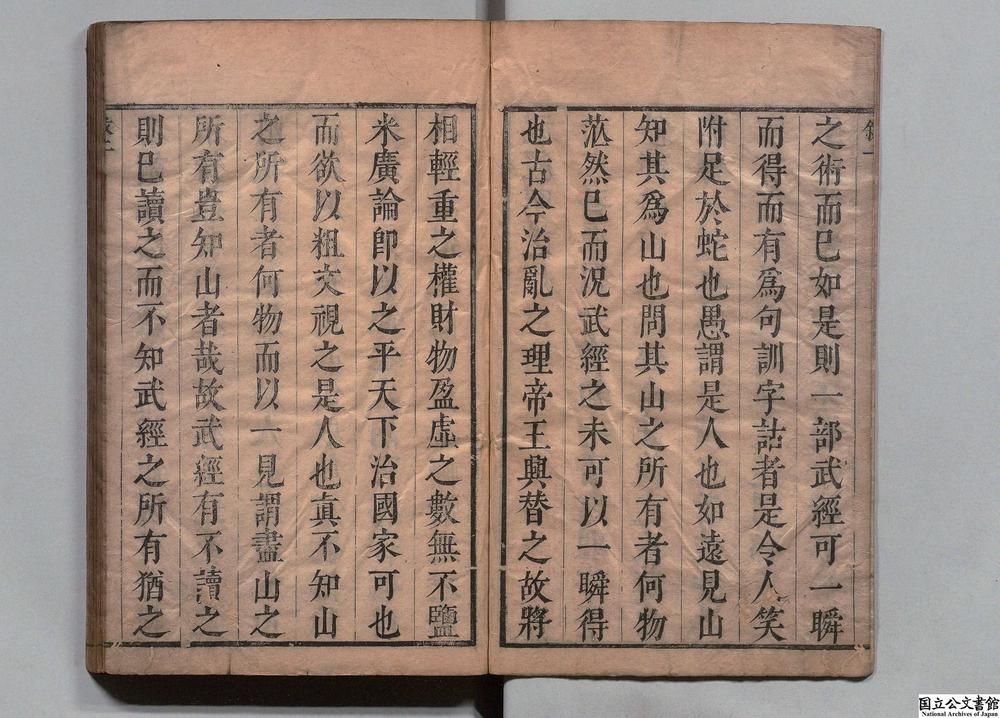 敘一
之術而已如是則一部武經可一瞬
而得而有爲句訓字詁者是令人笑
附足於蛇也愚謂是人也如遠見山
知其爲山也問其山之所有者何物
茫然已而況武經之未可以一瞬得
也古今治亂之理帝王興替之故將
相輕重之權財物盈虛之數無不鹽
米廣論卽以之平天下治國家可也
而欲以粗文視之是人也眞不知山
之所有者何物而以一見謂盡山之
所有豈知山者哉故武經有不讀之
則已讀之而不知武經之所有猶之
国立公文書館
National Archives of Japan